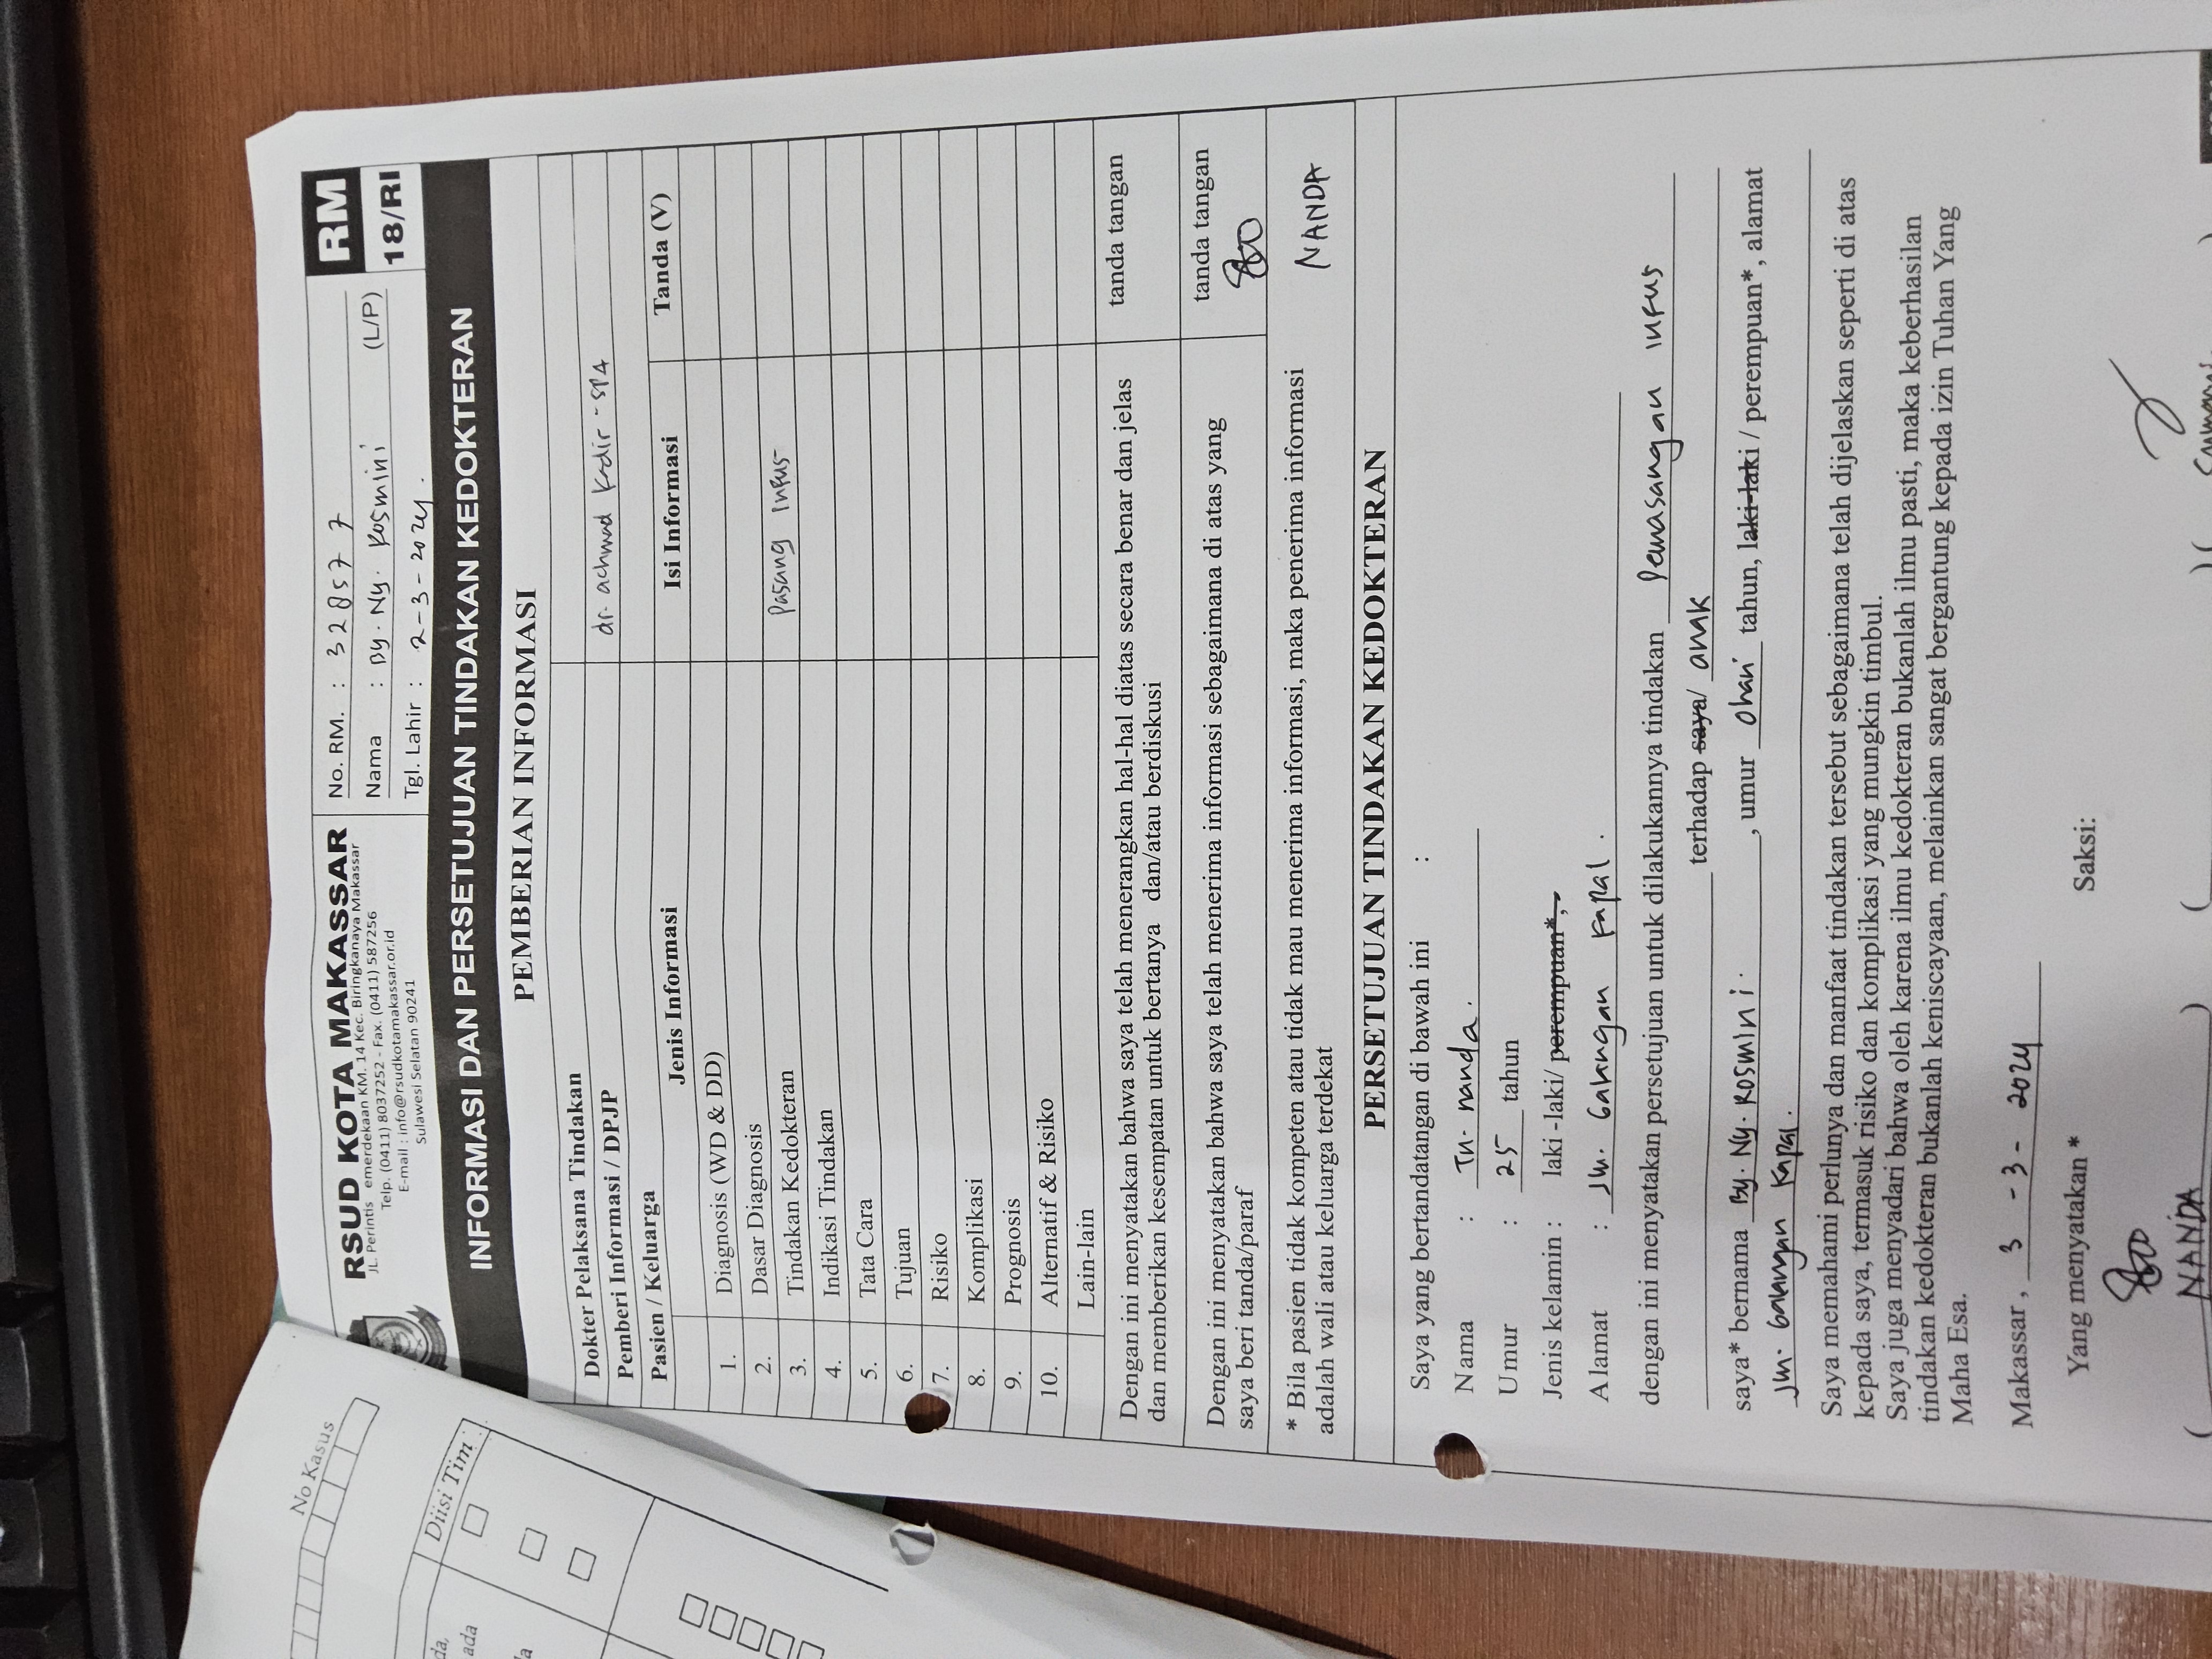 No Kasus
Diisi Tim
da,
ada
RSUD KOTA MAKASSAR
JL. Perintis emerdekaan KM. 14 Kec. Biringkanaya Makassar
Telp. (0411) 8037252 - Fax. (0411) 587256
E-mail : info@rsudkotamakassar.or.id
Sulawesi Selatan 90241
No. RM. : 328577
Nama : By. Ny. Rosmini (L/P)
Tgl. Lahir : 2-3-2024.
RM
18/RI
INFORMASI DAN PERSETUJUAN TINDAKAN KEDOKTERAN
PEMBERIAN INFORMASI
Dokter Pelaksana Tindakan
Pemberi Informasi / DPJP dr. achmad Kadir - SPA
Pasien / Keluarga
Jenis Informasi Isi Informasi Tanda (V)
1. Diagnosis (WD & DD)
2. Dasar Diagnosis
3. Tindakan Kedokteran Pasang Infus-
4. Indikasi Tindakan
5. Tata Cara
6. Tujuan
7. Risiko
8. Komplikasi
9. Prognosis
10. Alternatif & Risiko
Lain-lain
Dengan ini menyatakan bahwa saya telah menerangkan hal-hal diatas secara benar dan jelas tanda tangan
dan memberikan kesempatan untuk bertanya dan/atau berdiskusi
Dengan ini menyatakan bahwa saya telah menerima informasi sebagaimana di atas yang tanda tangan
saya beri tanda/paraf
* Bila pasien tidak kompeten atau tidak mau menerima informasi, maka penerima informasi NANDA
adalah wali atau keluarga terdekat
PERSETUJUAN TINDAKAN KEDOKTERAN
Saya yang bertandatangan di bawah ini :
Nama : Tn. nanda.
Umur : 25 tahun
Jenis kelamin : laki -laki/ perempuan*,
Alamat : Jln. Galangan Kapal.
dengan ini menyatakan persetujuan untuk dilakukannya tindakan Pemasangan infus
terhadap saya/ anak
saya* bernama By. Ny. Rosmini. , umur 0 hari tahun, laki-laki / perempuan*, alamat
Jln. Galangan Kapal.
Saya memahami perlunya dan manfaat tindakan tersebut sebagaimana telah dijelaskan seperti di atas
kepada saya, termasuk risiko dan komplikasi yang mungkin timbul.
Saya juga menyadari bahwa oleh karena ilmu kedokteran bukanlah ilmu pasti, maka keberhasilan
tindakan kedokteran bukanlah keniscayaan, melainkan sangat bergantung kepada izin Tuhan Yang
Maha Esa.
Makassar, 3 - 3 - 2024
Yang menyatakan * Saksi:
( NANDA ) ( ) ( )